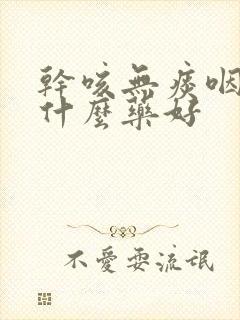 幹咳無痰咽
什麼藥好
不愛耍流氓